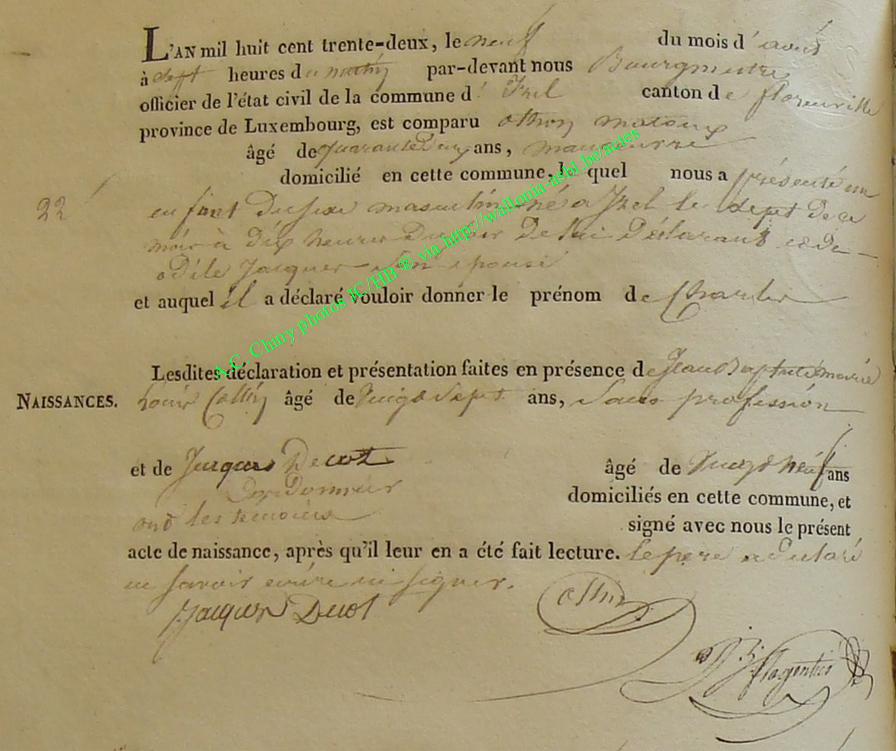 L'AN mil huit cent trente-deux, le neuf du mois d'avril
à sept heures du matin par-devant nous Bourgmestre
officier de l'état civil de la commune d'Izel canton de florenville
province de Luxembourg, est comparu
âgé de quarante deux ans, manoeuvre
domicilié en cette commune, le quel nous a présenté un
22
enfant du sexe masculin né a Izel le sept de ce
mois à dix heures du soir De lui Déclarant et de
odile Jacques son épouse
et auquel il a déclaré vouloir donner le prénom de Charles
Lesdites déclaration et présentation faites en présence de Jean Baptiste marie
NAISSANCES. Louis âgé de vingt sept ans, Sans profession
et de Jacques Decot âgé de vingt neuf ans
Cordonnier domiciliés en cette commune, et
ont les témoins signé avec nous le présent
acte de naissance, après qu'il leur en a été fait lecture. le pere a déclaré
ne savoir ecrire ni signer.
Jacques Decot
A.C. Chiny photos IC/HH ® via http://wallonia-asbl.be/actes